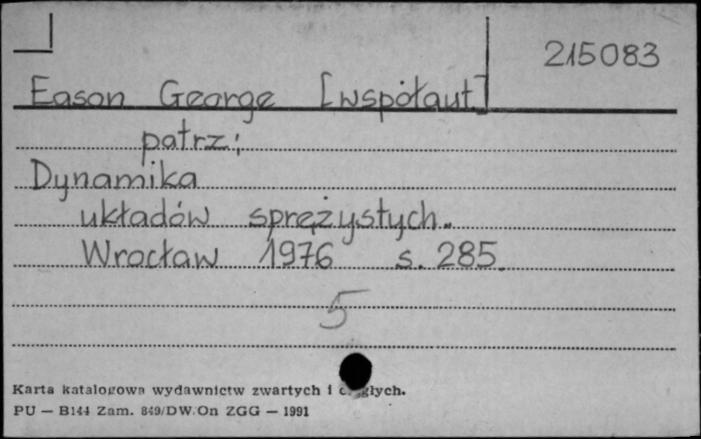 215083
Eason George [współaut]
patrz:
Dynamika
układów sprężystych..
Wrocław 1976 s. 285
5
Karta katalogowa wydawnictw zwartych i
PU — B144 Zam. 849/DW.On ZGG — 1991